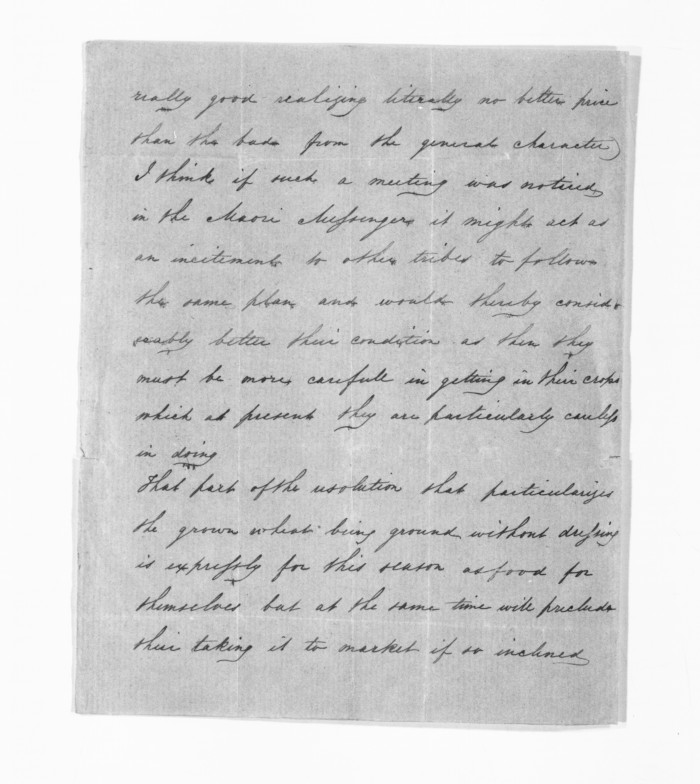 really good realizing literally no better price
than the bad from the general character)
I think if such a meeting was noticed
in the Maori Messenger it might act as
an incitement to other tribes to follow
the same plan and would thereby consid-
erably better their condition as then they
must be more carefull in getting in their crops
which at present they are particularly careless
in doing
That part of the resolution that particularizes
the grown wheat being ground without dressing
is expressly for this season as food for
themselves but at the same time will preclude
their taking it to market if so inclined